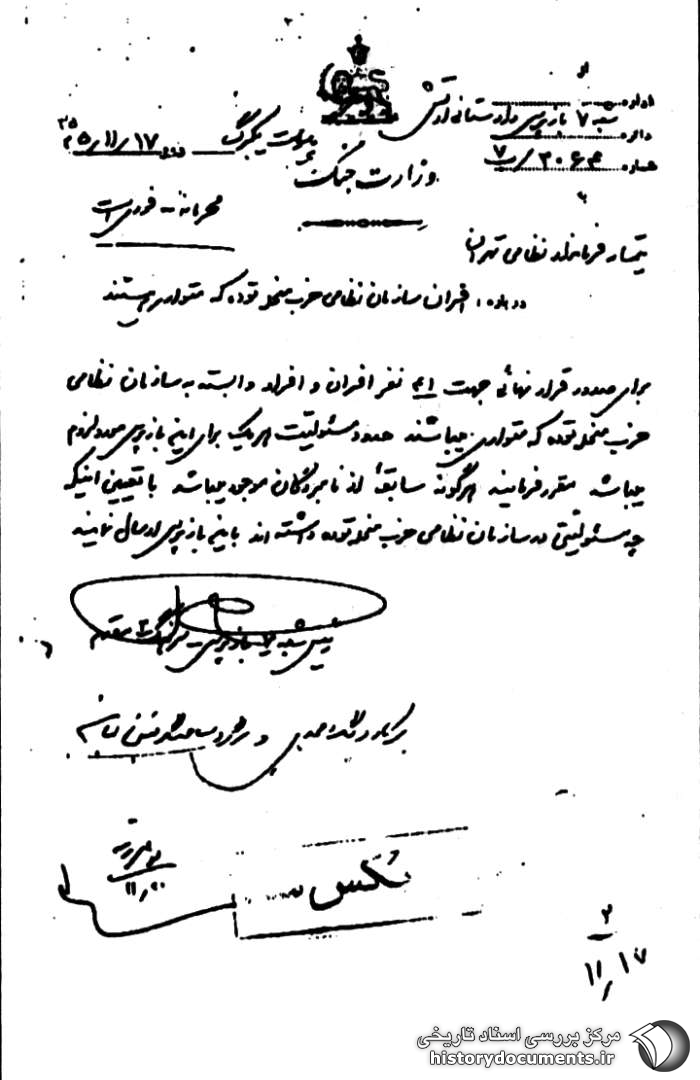 اداره
شعبه ۷ بازپرسی دادستانی ارتش
دائره
شماره ۳۰۶۴/ب ۷
وزارت جنگ
۱۷/۱۱/
محرمانه - فوری است
تیمسار فرماندار نظامی تهران
درباره: افسران سازمان نظامی حزب منحله توده که متواری هستند
برای صدور قرار نهائی جهت ۴۱ نفر افسران و افراد وابسته به سازمان نظامی
حزب منحله توده که متواری میباشند حدود مسئولیت هریک برای این بازپرسی مورد لزوم
میباشد مقرر فرمایند هرگونه سابقهٔ از نامبردگان موجود میباشد با تعیین اینکه
چه مسئولیتی در سازمان نظامی حزب منحله توده داشته اند باین بازپرسی ارسال نمایند
رئیس شعبه ۷ بازپرسی - سرهنگ ۲ مقدم
عکس
۲
۱۷/۱۱
مرکز بررسی اسناد تاریخی
historydocuments.ir